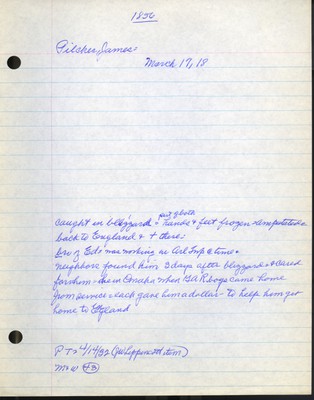 1856
Pilcher, James
March 17, 18
part of both
caught in blizzard & hands & feet frozen - amputated
back to England & + there
Bro of Ed's was working in Arl Twp @ time.
neighbors found him 3 days after blizzard & cared
for him - in Omaha when GAR boys came home
from service each gave him a dollar to help him get
home to England
P T 4/14/32 (Lippincott item)
M W (43)